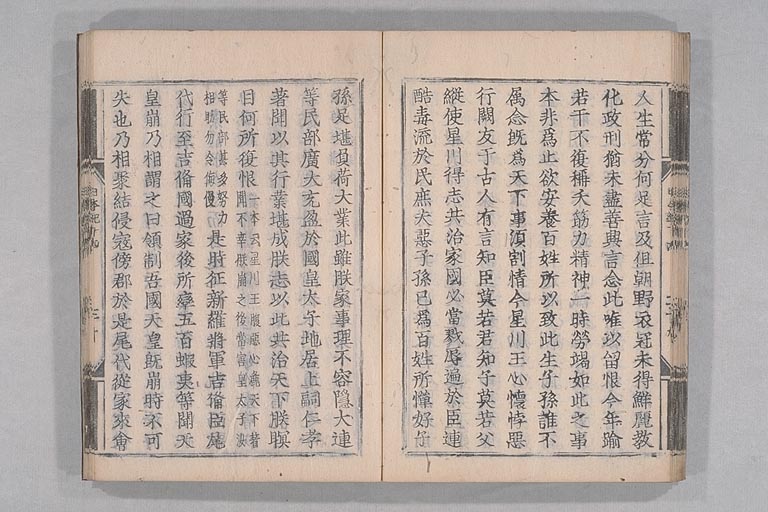 人生常分何足言及但朝野衣冠未得鮮麗教
化政刑猶未盡善興言念此唯以留恨今年踰
若干不復稱夭筋力精神一時勞竭如此之事
本非為止欲安養百姓所以致此生子孫誰不
属念既為天下事須割情今星川王心懷悖惡
行闕友于古人有言知臣莫若君知子莫若父
縱使星川得志共治家國必當戮辱遍於臣連
酷毒流於民庶夫惡子孫已為百姓所憚好子
孫足堪負荷大業此雖朕家事理不容隱大連
等民部廣大充盈於國皇太子地居上嗣仁孝
著聞以其行業堪成朕志以此共治天下朕瞑
目何所復恨一本云星川王腹惡心麁天下著
聞不幸朕崩之後當害皇太子汝
等民部甚多努力
相助勿令侮慢是時征新羅將軍吉備臣尾
代行至吉備國過家後所率五百蝦夷等聞天
皇崩乃相謂之曰領制吾國天皇既崩時不可
失也乃相聚結侵寇傍郡於是尾代從家來會